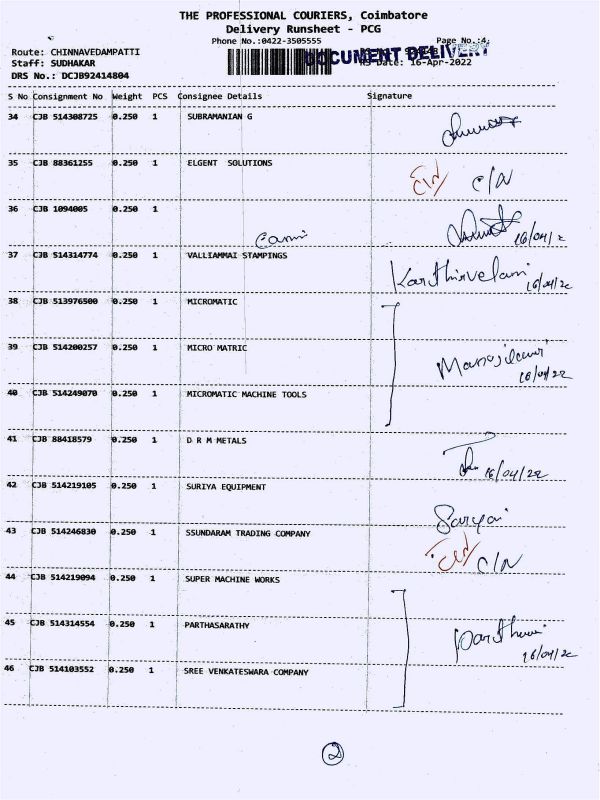 THE PROFESSIONAL COURIERS, Coimbatore
Delivery Runsheet - PCG
Phone No.:0422-3505555 Page No.:4
Route: CHINNAVEDAMPATTI
DOCUMENT DELIVERY
Staff: SUDHAKAR Date: 16-Apr-2022
DRS No.: DCJB92414804
S No Consignment No Weight PCS Consignee Details Signature
34 CJB 514308725 0.250 1 SUBRAMANIAN G
35 CJB 88361255 0.250 1 ELGENT SOLUTIONS C/N
36 CJB 1094005 0.250 1
16/04/2
37 CJB 514314774 0.250 1 VALLIAMMAI STAMPINGS Karthirvelani
16/04/22
38 CJB 513976500 0.250 1 MICROMATIC
39 CJB 514200257 0.250 1 MICRO MATRIC
16/04/22
40 CJB 514249070 0.250 1 MICROMATIC MACHINE TOOLS
41 CJB 88418579 0.250 1 D R M METALS
16/04/22
42 CJB 514219105 0.250 1 SURIYA EQUIPMENT
43 CJB 514246830 0.250 1 SSUNDARAM TRADING COMPANY
C/N
44 CJB 514219094 0.250 1 SUPER MACHINE WORKS
45 CJB 514314554 0.250 1 PARTHASARATHY
16/04/22
46 CJB 514103552 0.250 1 SREE VENKATESWARA COMPANY
2